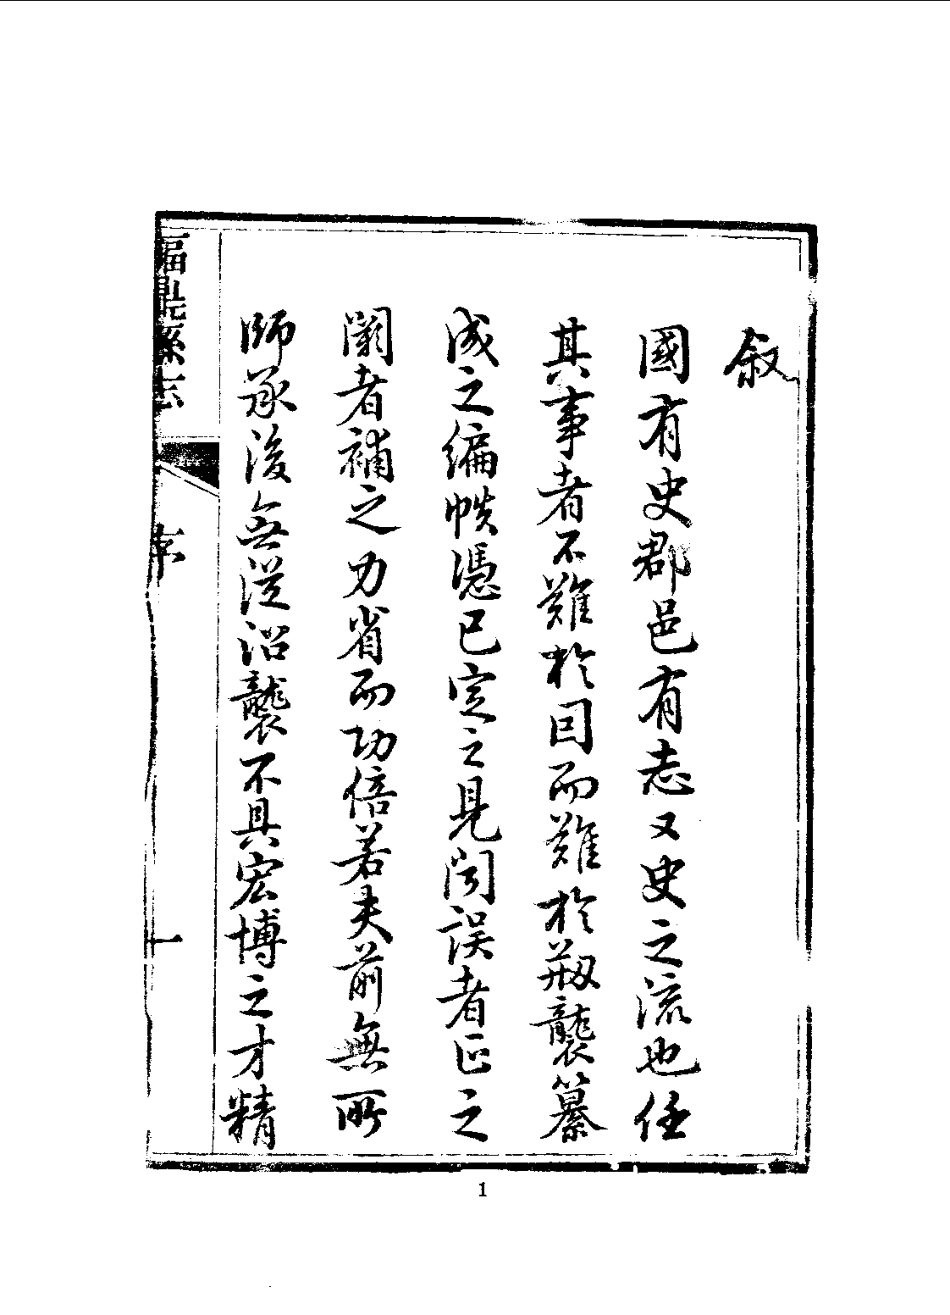 叙
國有史郡邑有志又史之流也任
其事者不難於因而難於剏襲纂
成之編帙憑已定之見聞誤者正之
闕者補之力省而功倍若夫前無所
師承後無從沿襲不具宏博之才精
福鼎縣志
序
一
1